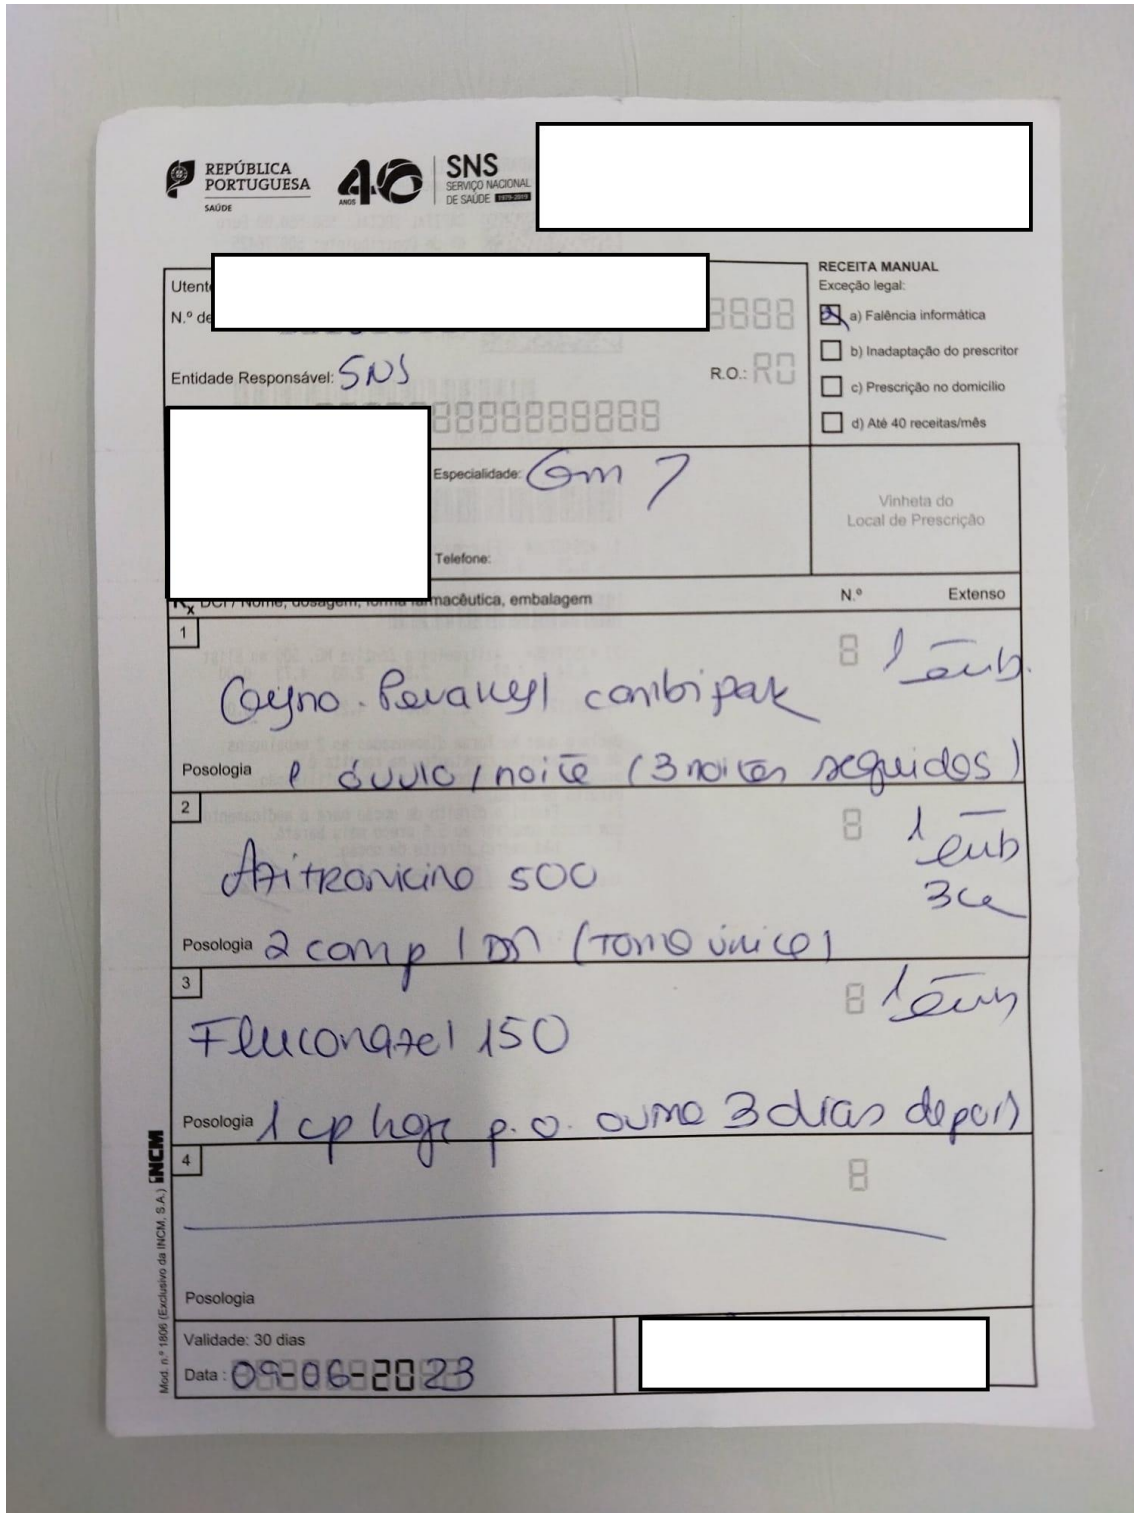 REPÚBLICA
PORTUGUESA
SAÚDE
40
ANOS
SNS
SERVIÇO NACIONAL
DE SAÚDE 1979-2019
RECEITA MANUAL
Exceção legal:
a) Falência informática
b) Inadaptação do prescritor
c) Prescrição no domicílio
d) Até 40 receitas/mês
N.º de
Entidade Responsável: SNS
R.O.: RO
Especialidade:
Telefone:
Vinheta do
Local de Prescrição
Rx DCI / Nome, dosagem, forma farmacêutica, embalagem N.º Extenso
1
1 emb.
Gyno-Pevaryl combipak
Posologia 1 óvulo / noite (3 noites seguidas)
2
1
emb
Azitromicina 500
Posologia 2 comp (toma única)
3
1 emb
Fluconazol 150
Posologia 1 cp hoje p.o. outro 3 dias depois
4
Posologia
Validade: 30 dias
Data: 09-06-2023
Mod. n.º 1806 (Exclusivo da INCM, S.A.) INCM